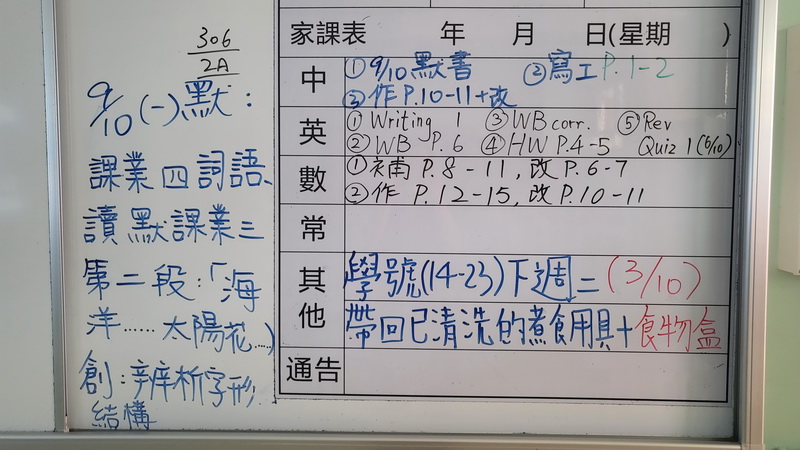 306
2A
9/10(一)默：
課業四詞語、
讀默課業三
第二段：「海
洋……太陽花…」
創：辨析字形
結構
家課表 年 月 日(星期 )
中 ①9/10默書 ②寫工P.1-2
③作P.10-11+改
英 ①Writing 1 ③WB corr. ⑤Rev
②WB P.6 ④HW P.4-5 Quiz 1 (6/10)
數 ①補 P.8-11,改P.6-7
②作 P.12-15,改P.10-11
常
其他 學號(14-23)下週二(3/10)
帶回已清洗的煮食用具+食物盒
通告